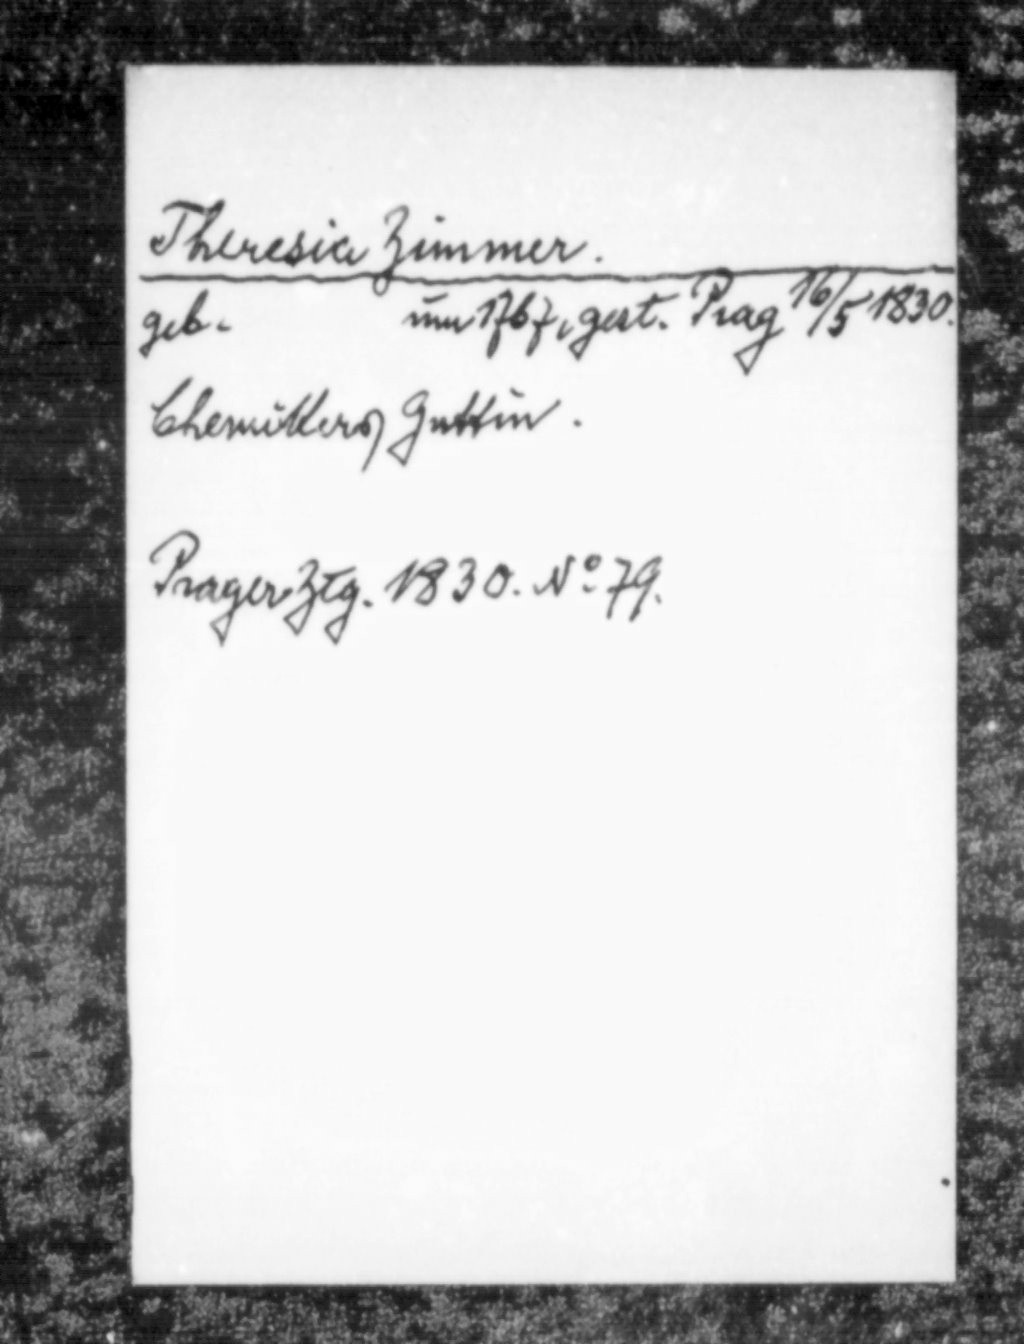 Theresia Zimmer.
geb. um 1767, gest. Prag 16/5 1830.
Chemikers Gattin.
Prager Ztg. 1830. No 79.